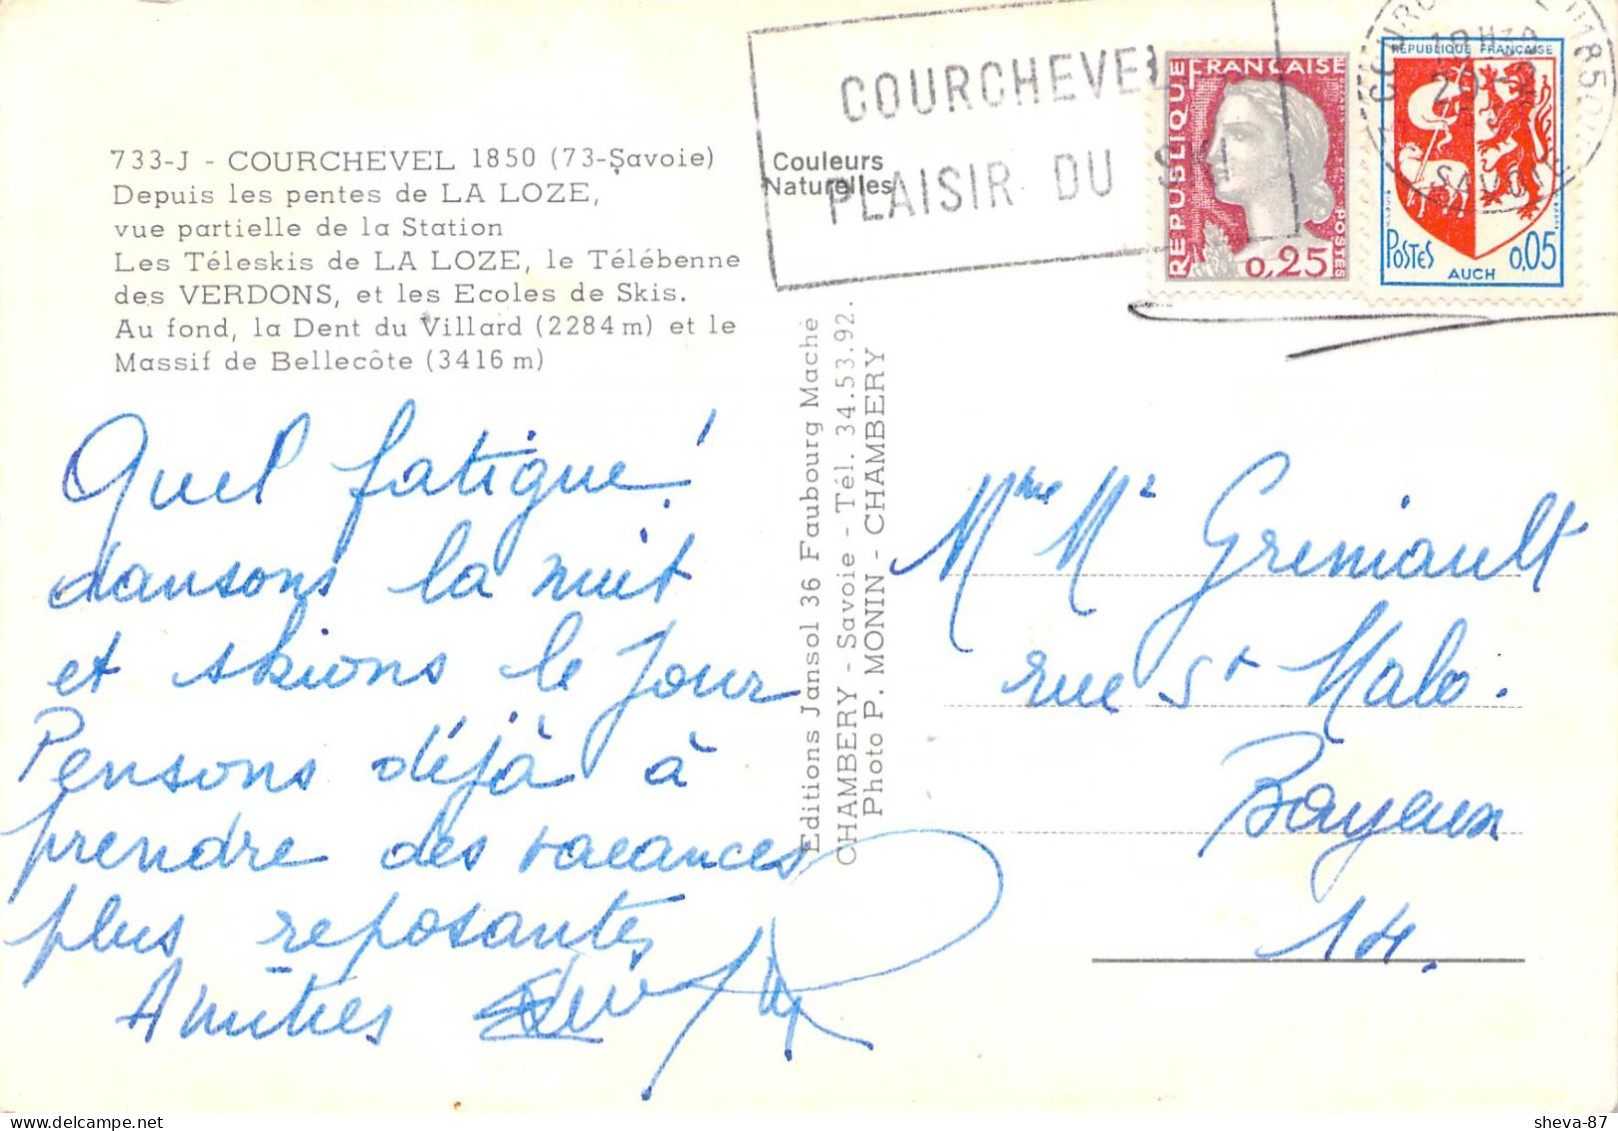 COURCHEVEL
PLAISIR DU SKI
RÉPUBLIQUE FRANÇAISE
POSTES
0,25
RÉPUBLIQUE FRANÇAISE
POSTES
0,05
AUCH
SAVOIE
733-J - COURCHEVEL 1850 (73-Savoie)
Depuis les pentes de LA LOZE,
vue partielle de la Station
Les Téleskis de LA LOZE, le Télébenne
des VERDONS, et les Ecoles de Skis.
Au fond, la Dent du Villard (2284 m) et le
Massif de Bellecôte (3416 m)
Couleurs
Naturelles
Editions Jansol 36 Faubourg Maché
CHAMBERY - Savoie - Tél. 34.53.92.
Photo P. MONIN - CHAMBERY
Quel fatigue !
dansons la nuit
et skions le jour
Pensons déjà à
prendre des vacances
plus reposantes
Amitiés
Mme Mr Greniault
rue St Malo.
Bayeux
14.
sheva-87